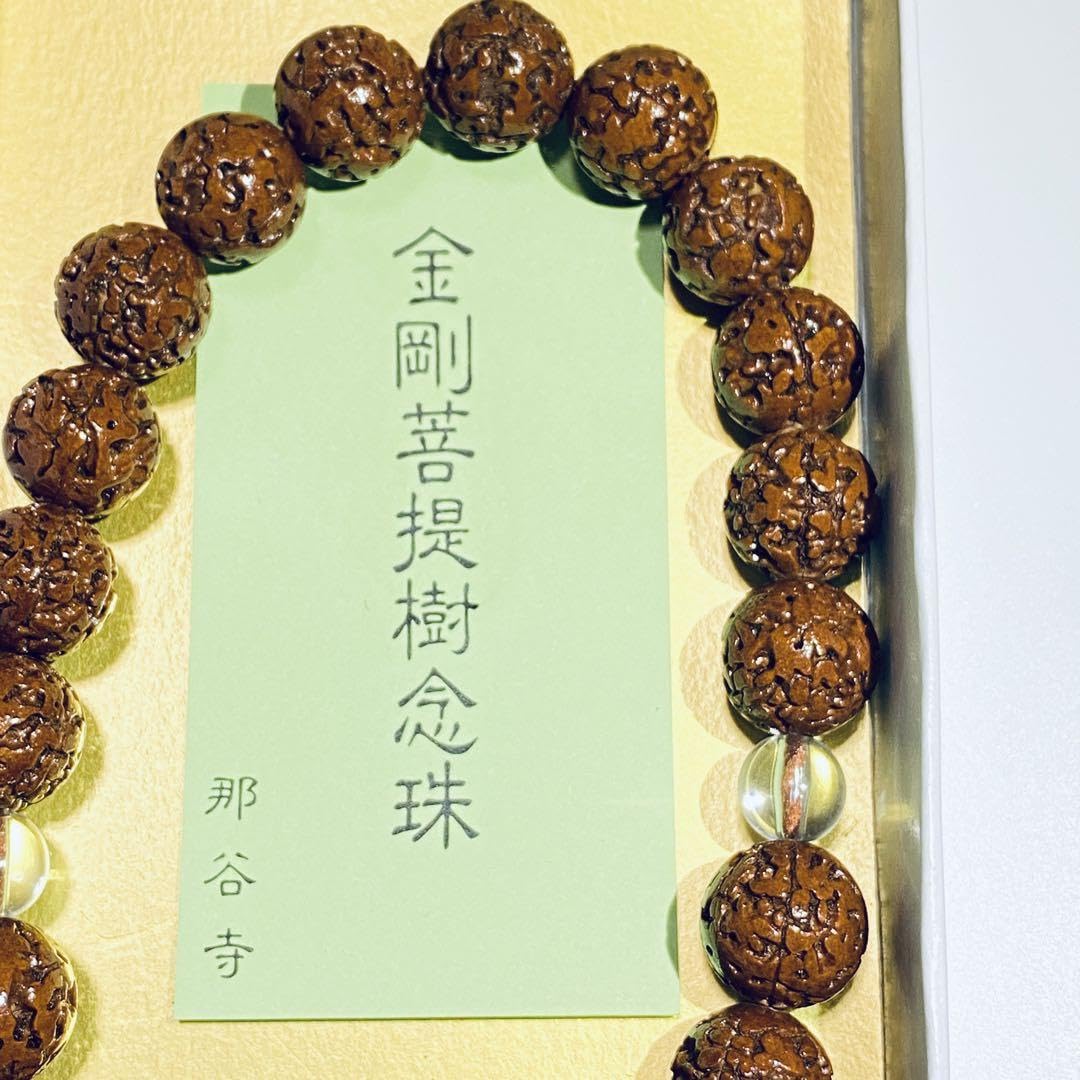 金剛菩提樹念珠
那谷寺